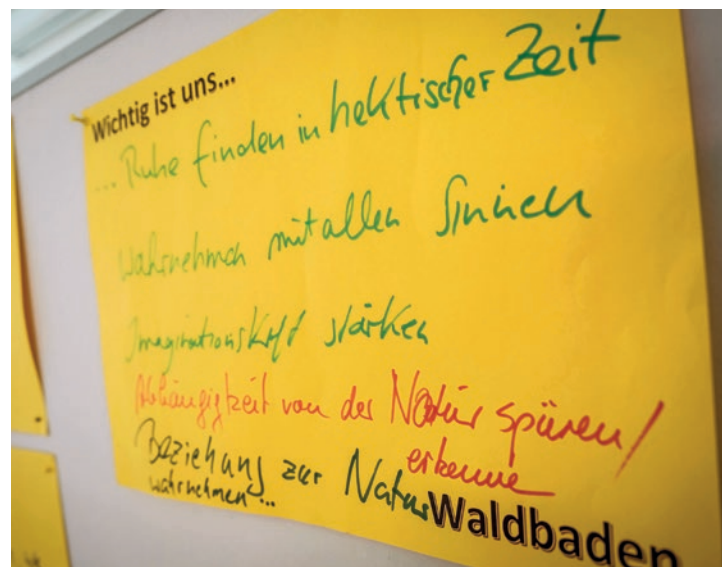 Wichtig ist uns...
... Ruhe finden in hektischer Zeit
Wahrnehmen mit allen Sinnen
Imaginationskraft stärken
Abhängigkeit von der Natur spüren/
erkenne
Beziehung zur Natur
wahrnehmen...
Waldbaden